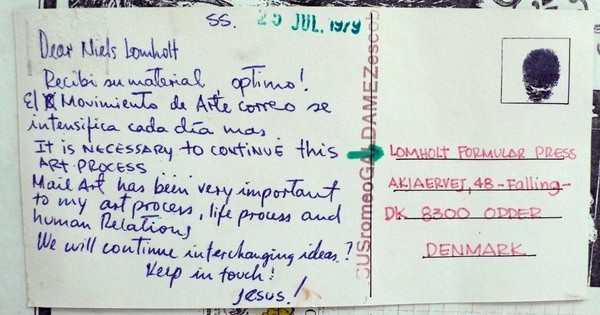 SS. 25 JUL. 1979
Dear Niels Lomholt
Recibi su material, optimo!
El Movimiento de Arte correo se
intensifica cada día mas.
IT IS NECESSARY TO CONTINUE this
ART PROCESS
Mail Art has been very important
to my art process, life process and
human Relations
We will continue interchanging ideas?
Keep in touch!
Jesus!
LOMHOLT FORMULAR PRESS
AKJAERVEJ, 48-Falling-
DK 8300 ODDER
DENMARK